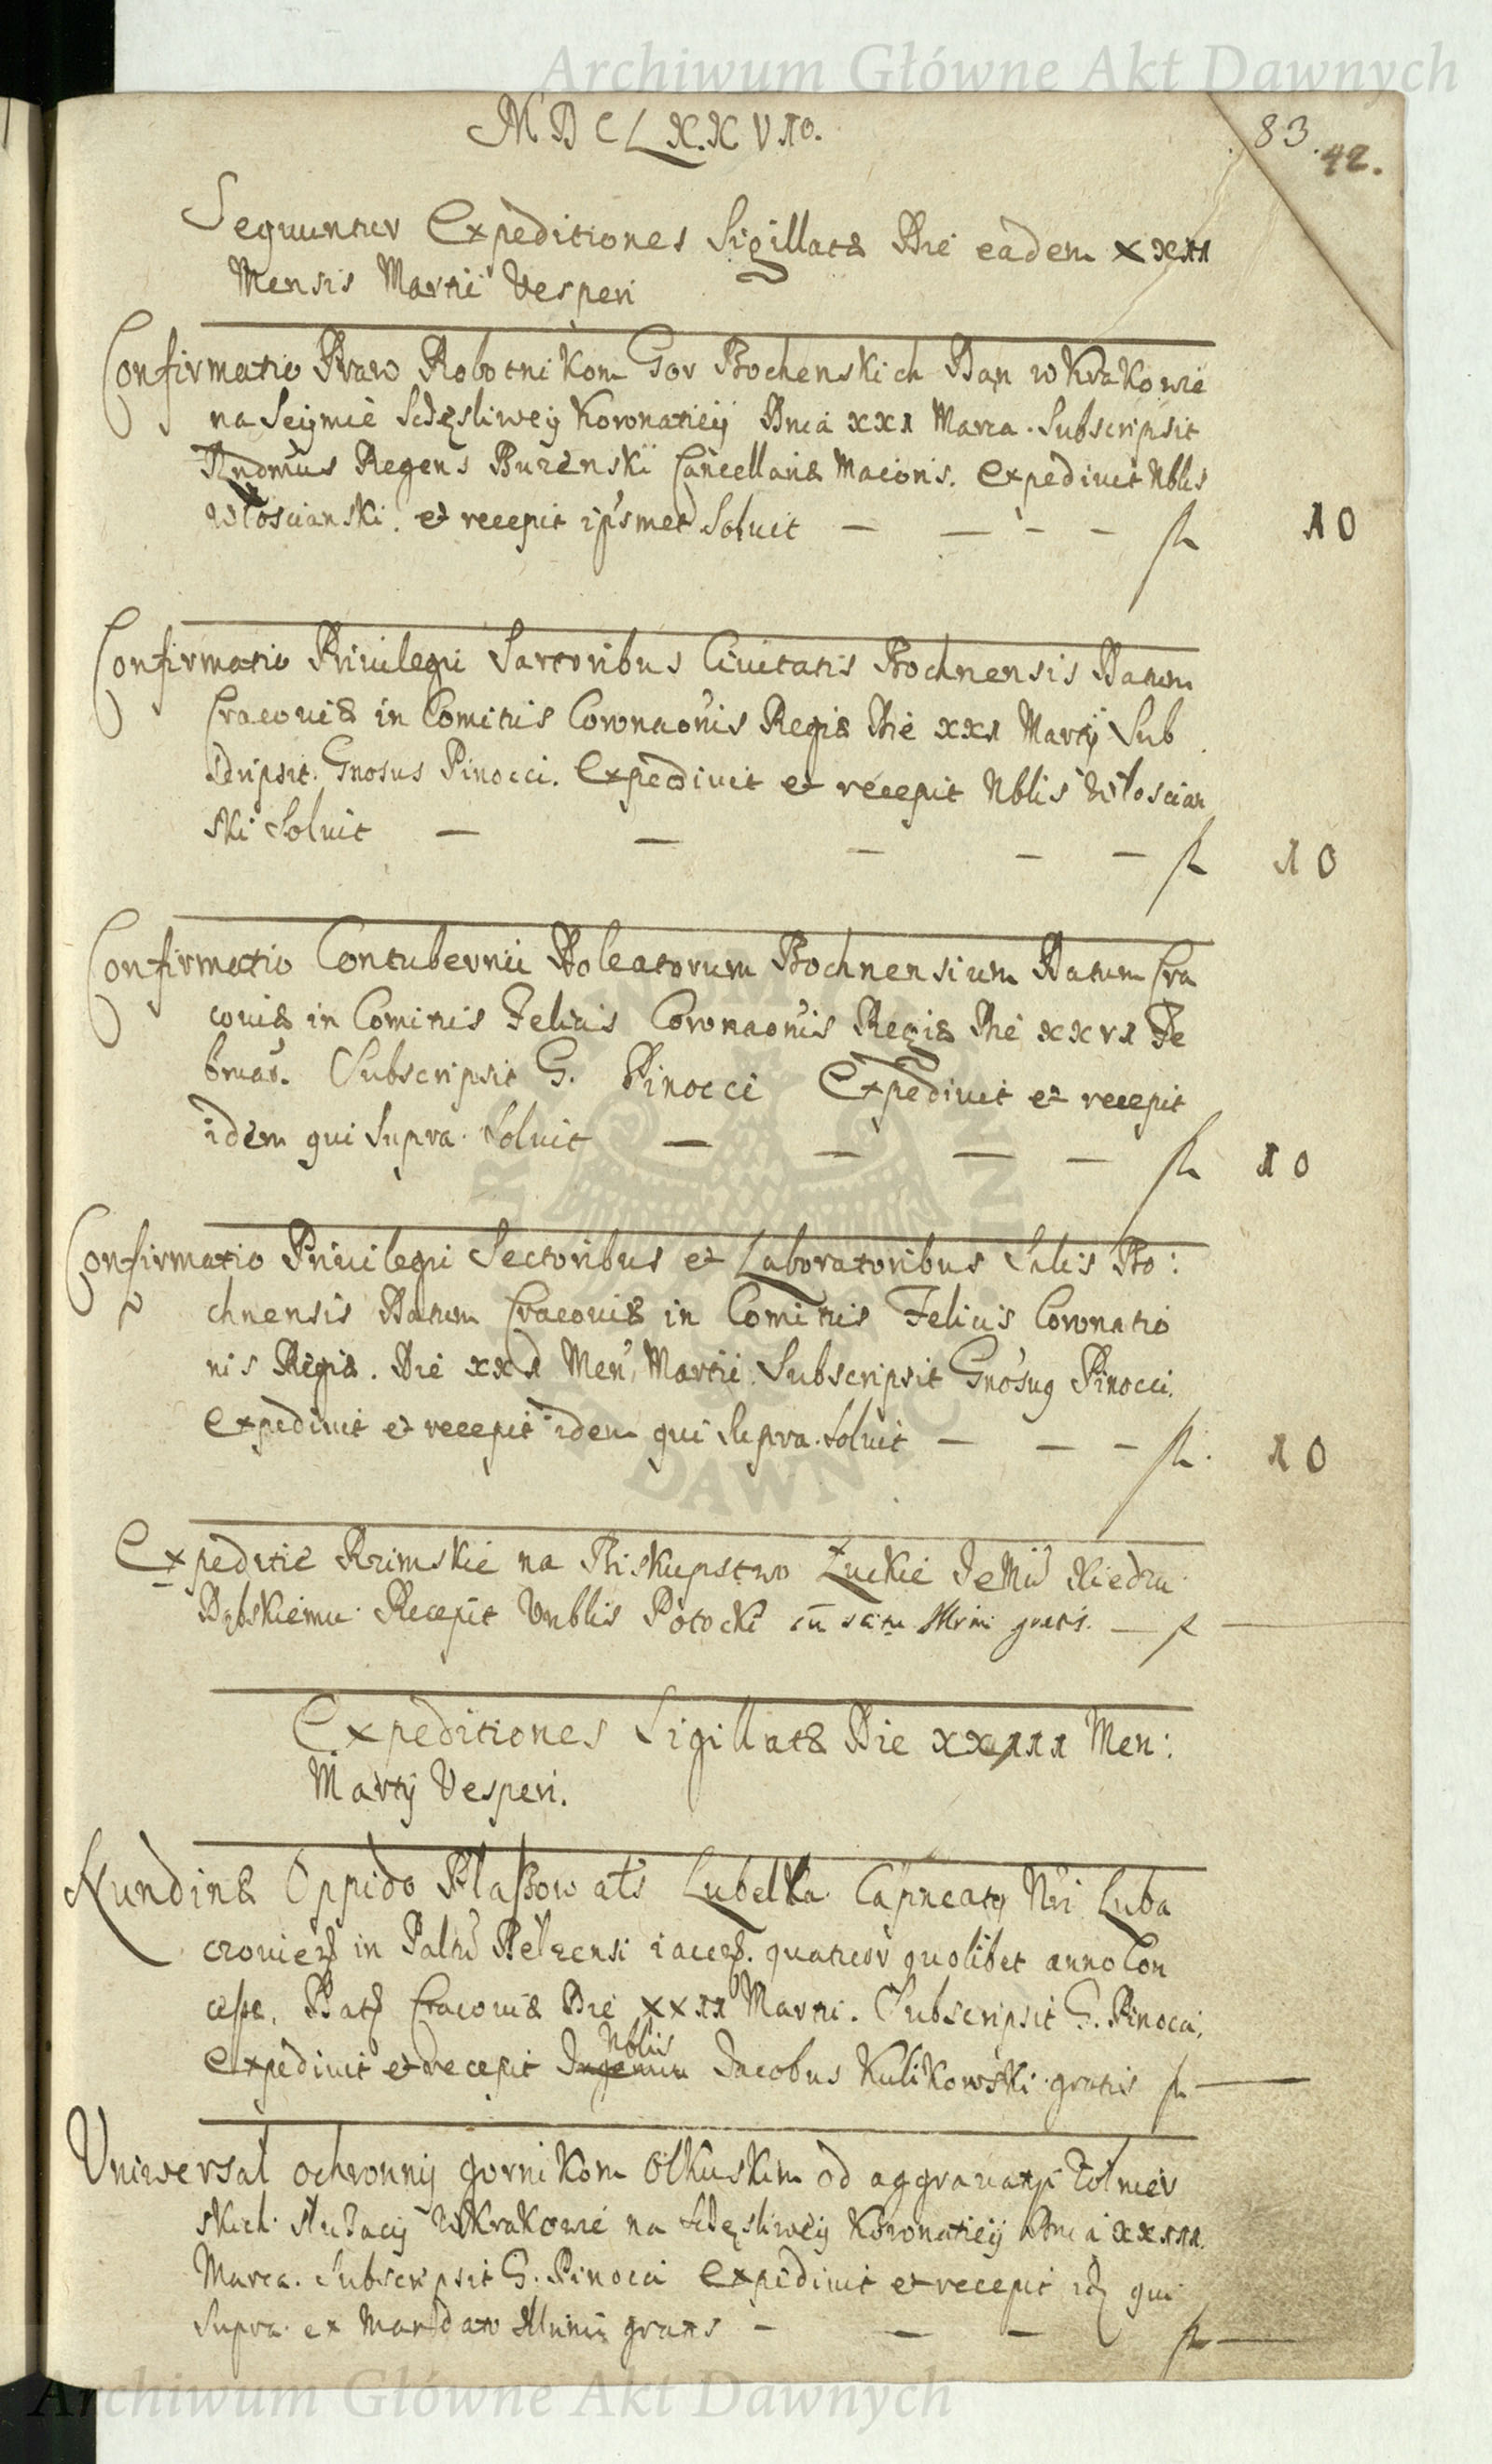 Archiwum Główne Akt Dawnych
MDCLXXVIo.
83.
42.
Sequuntur Expeditiones Sigillatæ Die eadem XXII
Mensis Martii Vesperi
Confirmatio Praw Robotnikom Gor Bochenskich Dan w Krakowie
na Seijmie Sczęsliweij Koronatieij Dnia XXI Marca. Subscripsit
Rndmus Regens Burzenski Cancellariæ Maioris. Expediuit Nblis
Włoscianski. et recepit ipsmet Soluit — — — — fl 10
Confirmatio Priuilegii Sartoribus Ciuitatis Bochnensis Datum
Cracouiæ in Comitiis Coronaonis Regiæ Die XXI Martij Sub
scripsit. Gnosus Pinocci. Expediuit et recepit Nblis Włoscian
ski Soluit — — — — — fl 10
Confirmatio Contubernii Doleatorum Bochnensium Datum Cra
couiæ in Comitiis Felicis Coronaonis Regiæ Die XXVI Fe
bruar. Subscripsit G. Pinocci Expediuit et recepit
idem qui Supra. Soluit — — — — fl 10
Confirmatio Priuilegii Sectoribus et Laboratoribus Salis Bo:
chnensis Datum Cracouiæ in Comitiis Felicis Coronatio
nis Regiæ. Die XXI Men, Martii. Subscripsit Gnosus Pinocci.
Expediuit et recepit idem qui Supra. Soluit — — — fl. 10
Expeditie Rzimskie na Biskupstwo Łuckie JeMci Xiedzu
Dąbskiemu. Recepit Vnblis Potocki cū scitu Illrmi gratis. — fl —
Expeditiones Sigillatæ Die XXIII Men:
Martij Vesperi.
Nundinæ Oppido Plaszow als Lubelka Capneatus Nri Luba
czouien in Paltu Belzensi iacen. quatuor quolibet anno Con
cesse. Dat Cracouiæ Die XXII Martii. Subscripsit G. Pinocci,
Nblis
Expediuit et recepit Jacobus Kulikowski gratis fl —
Vniwersał ochronnij gornikom Olkuskim od aggrauatij Zołnier
skich słuzacij w Krakowie na sczęsliweij Koronatieij Dnia XXIII.
Marca. Subscripsit G. Pinocci Expediuit et recepit id qui
Supra ex Mandato Illmi gratis — — — fl —
Archiwum Główne Akt Dawnych